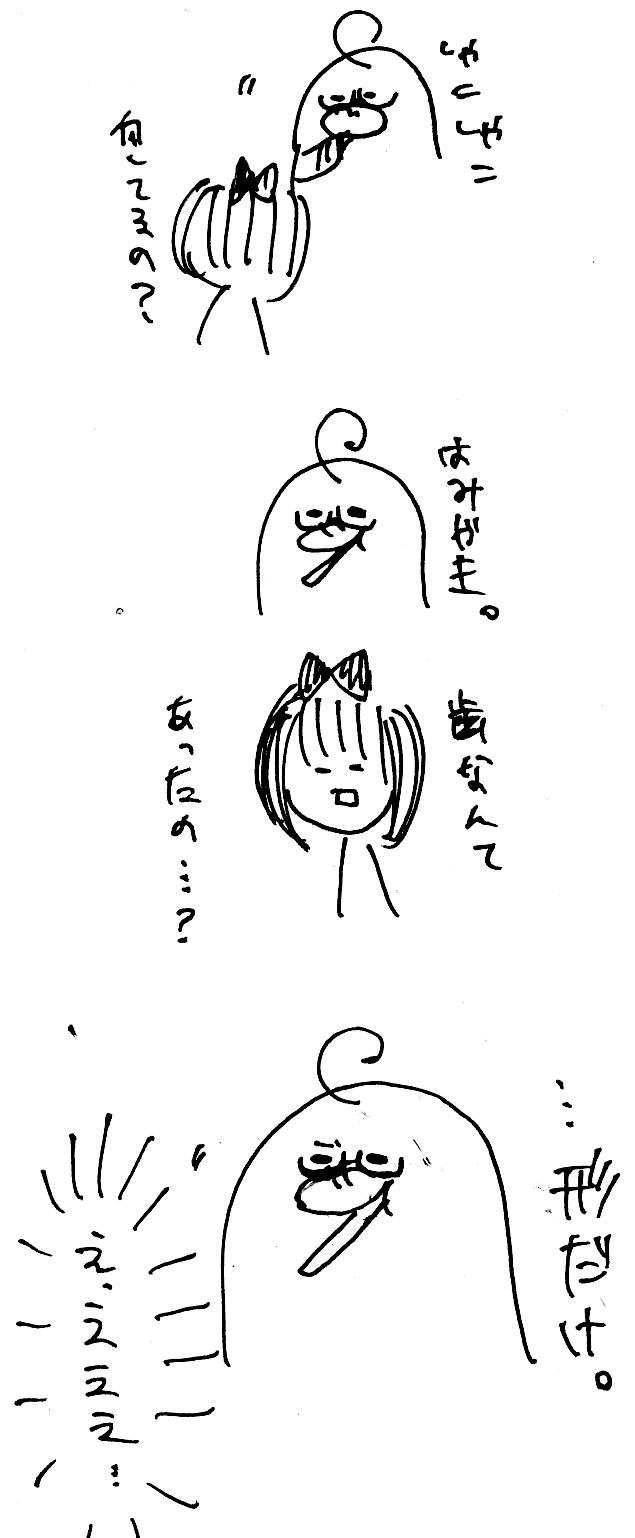 しゃこ
しゃこ
何してるの?
はみがき。
歯なんて
あったの…?
…形だけ。
え、えええ…